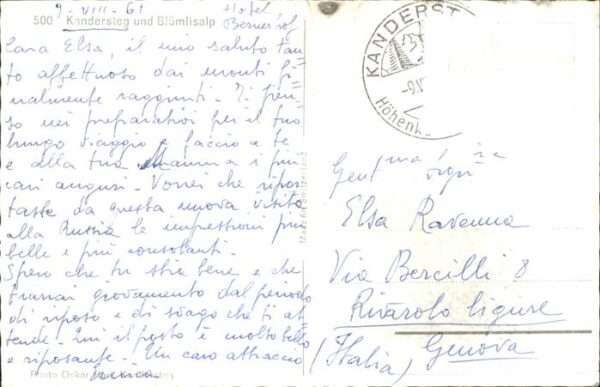 9-VIII-61
Hotel
500 Kandersteg und Blümlisalp
Cara Elsa, il mio saluto tan
to affettuoso dai monti fi
nalmente raggiunti. Ti pen
so nei preparativi per il tuo
lungo viaggio e faccio a te
e alla tua Mamma i più
cari auguri. Vorrei che ripor
tasse da questa nuova visita
alla Russia le impressioni più
belle e più consolanti.
Spero che tu stia bene e che
trarrai giovamento dal periodo
di riposo e di svago che ti at
tende. Qui il posto è molto bello
e riposante. Un caro abbraccio
Photo
KANDERST
-9.V
Höhenk
Gent.ma Sig.na
Elsa Ravenna
Via Bercilli 8
Rivarolo ligure
Genova
(Italia)